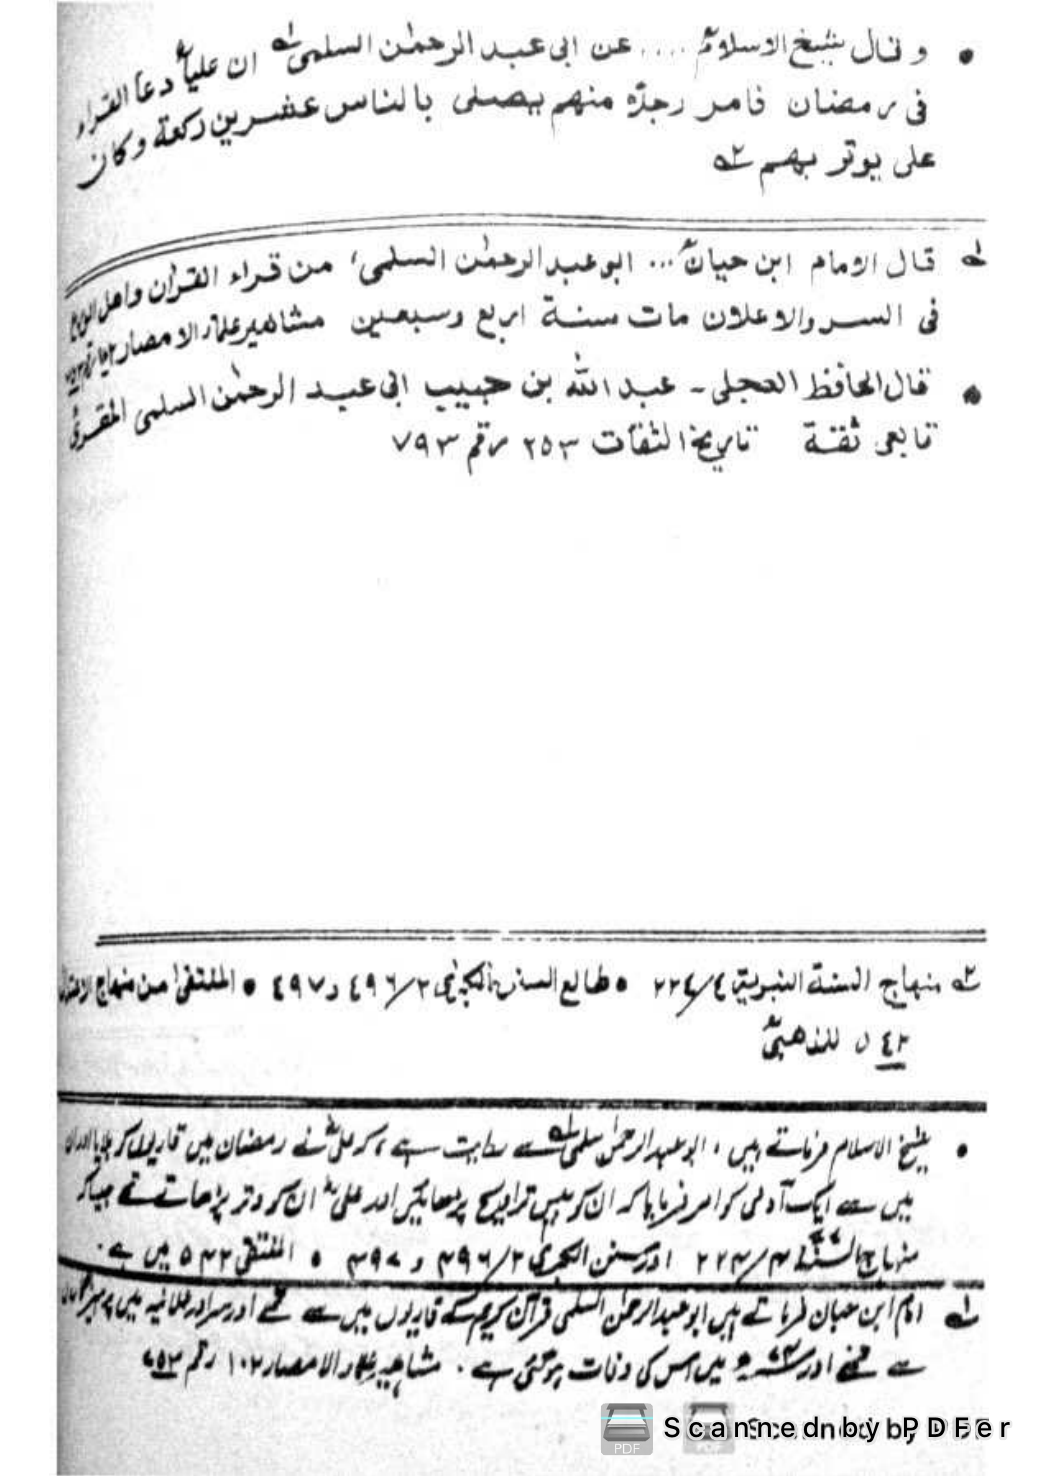 • وقال شيخ الاسلامؒ .... عن ابى عبد الرحمٰن السلمى ؎۱ ان علياؓ دعا القراء
فى رمضان فامر رجلاً منهم يصلى بالناس عشرين ركعة وكان
على يوتر بهم ؎۲
؎۱ قال الامام ابن حبانؒ ... ابو عبد الرحمٰن السلمى، من قراء القرآن واهل الورع
فى السر والاعلان مات سنة اربع وسبعين مشاهير علماء الامصار ۱۰۲
• قال الحافظ العجلى ـ عبد الله بن حبيب ابى عبد الرحمٰن السلمى المقرئ
تابعى ثقة تاريخ الثقات ۲۵۳ رقم ۷۹۳
؎۲ منهاج السنة النبوية ۴/۲۲٤ • طالع السنن الكبرىٰ ۲/٤۹٦ و ٤۹۷ • الملتقىٰ من منهاج الاعتدال
۵٤۲ للذهبىؒ
• شیخ الاسلام فرماتے ہیں، ابو عبد الرحمٰن سلمی ؎۱ سے روایت ہے، کہ علیؓ نے رمضان میں قاریوں کو بلایا اور ان
میں سے ایک آدمی کو امر فرمایا کہ ان کو بیس تراویح پڑھائیں اور علیؓ ان کو وتر پڑھاتے تھے جیسا کہ
منہاج السنۃ ۴/۲۲۴ اور سنن الکبریٰ ۲/۴۹۶ و ۴۹۷ • المنتقیٰ ۵۴۲ میں ہے۔
؎۱ امام ابن حبان فرماتے ہیں ابو عبد الرحمٰن السلمی قرآن کریم کے قاریوں میں سے تھے اور سر اور علانیہ میں پرہیزگاروں
سے تھے اور ۷۴ھ میں اس کی وفات ہو گئی ہے۔ مشاہیر علماء الامصار ۱۰۲ رقم ۷۵۳
Scanned by PDFer